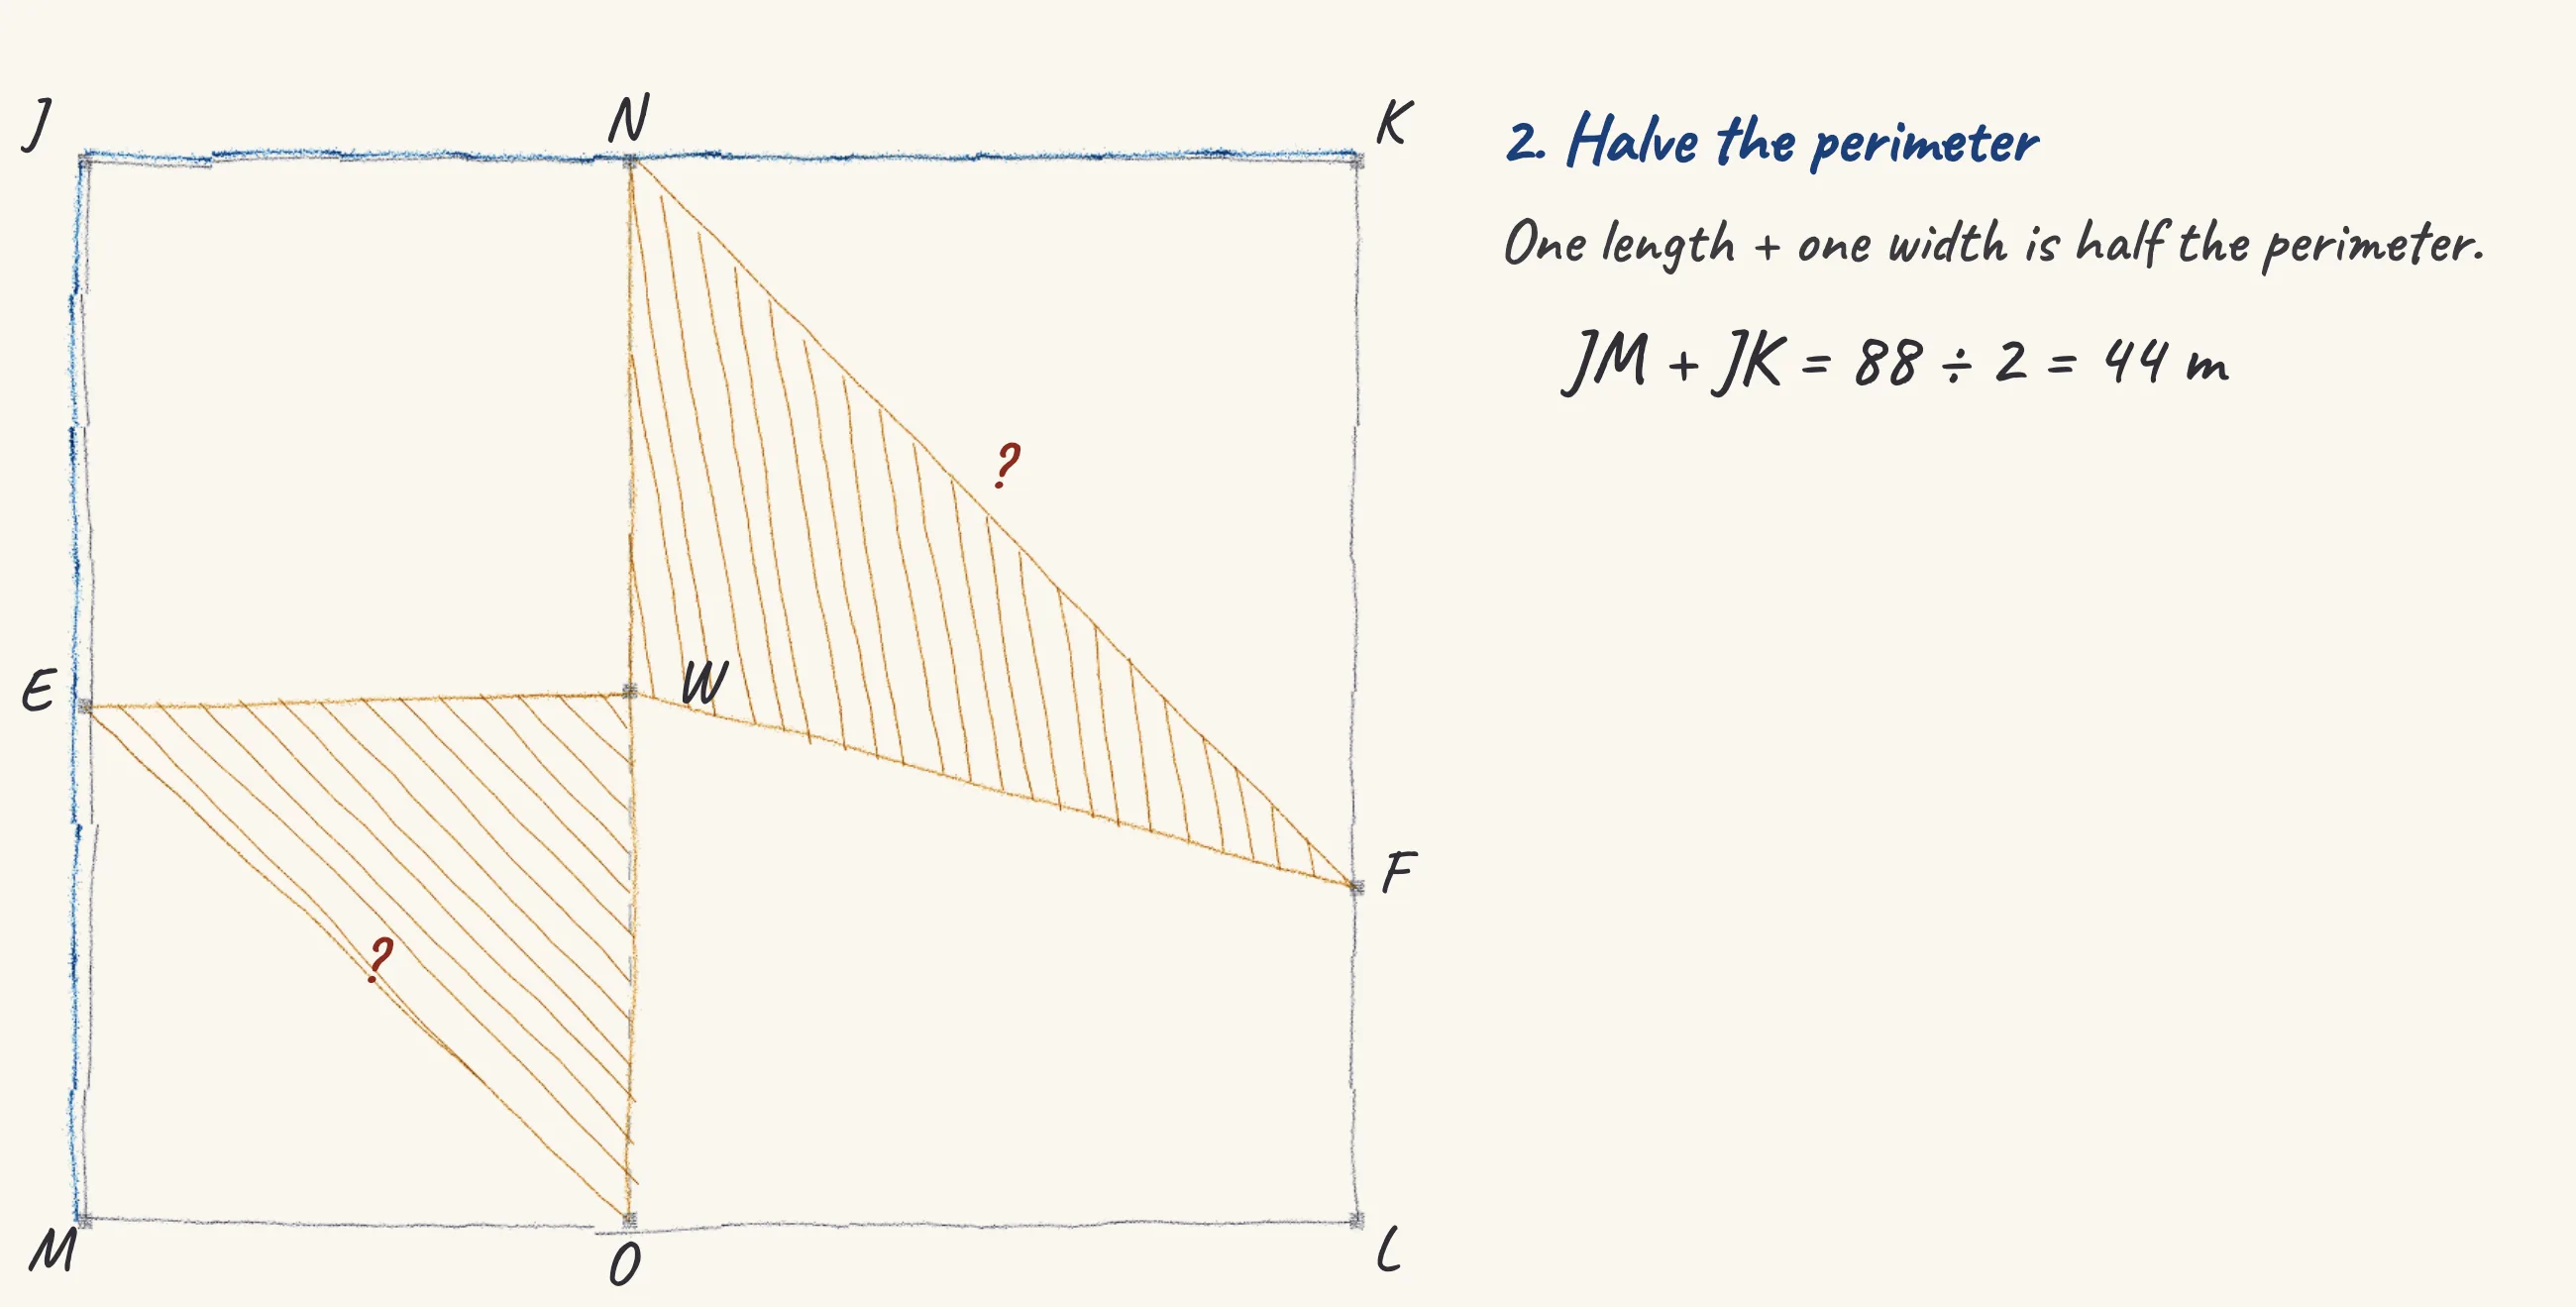 J
N
K
2. Halve the perimeter
One length + one width is half the perimeter.
JM + JK = 88 ÷ 2 = 44 m
?
E
W
F
?
M
O
L